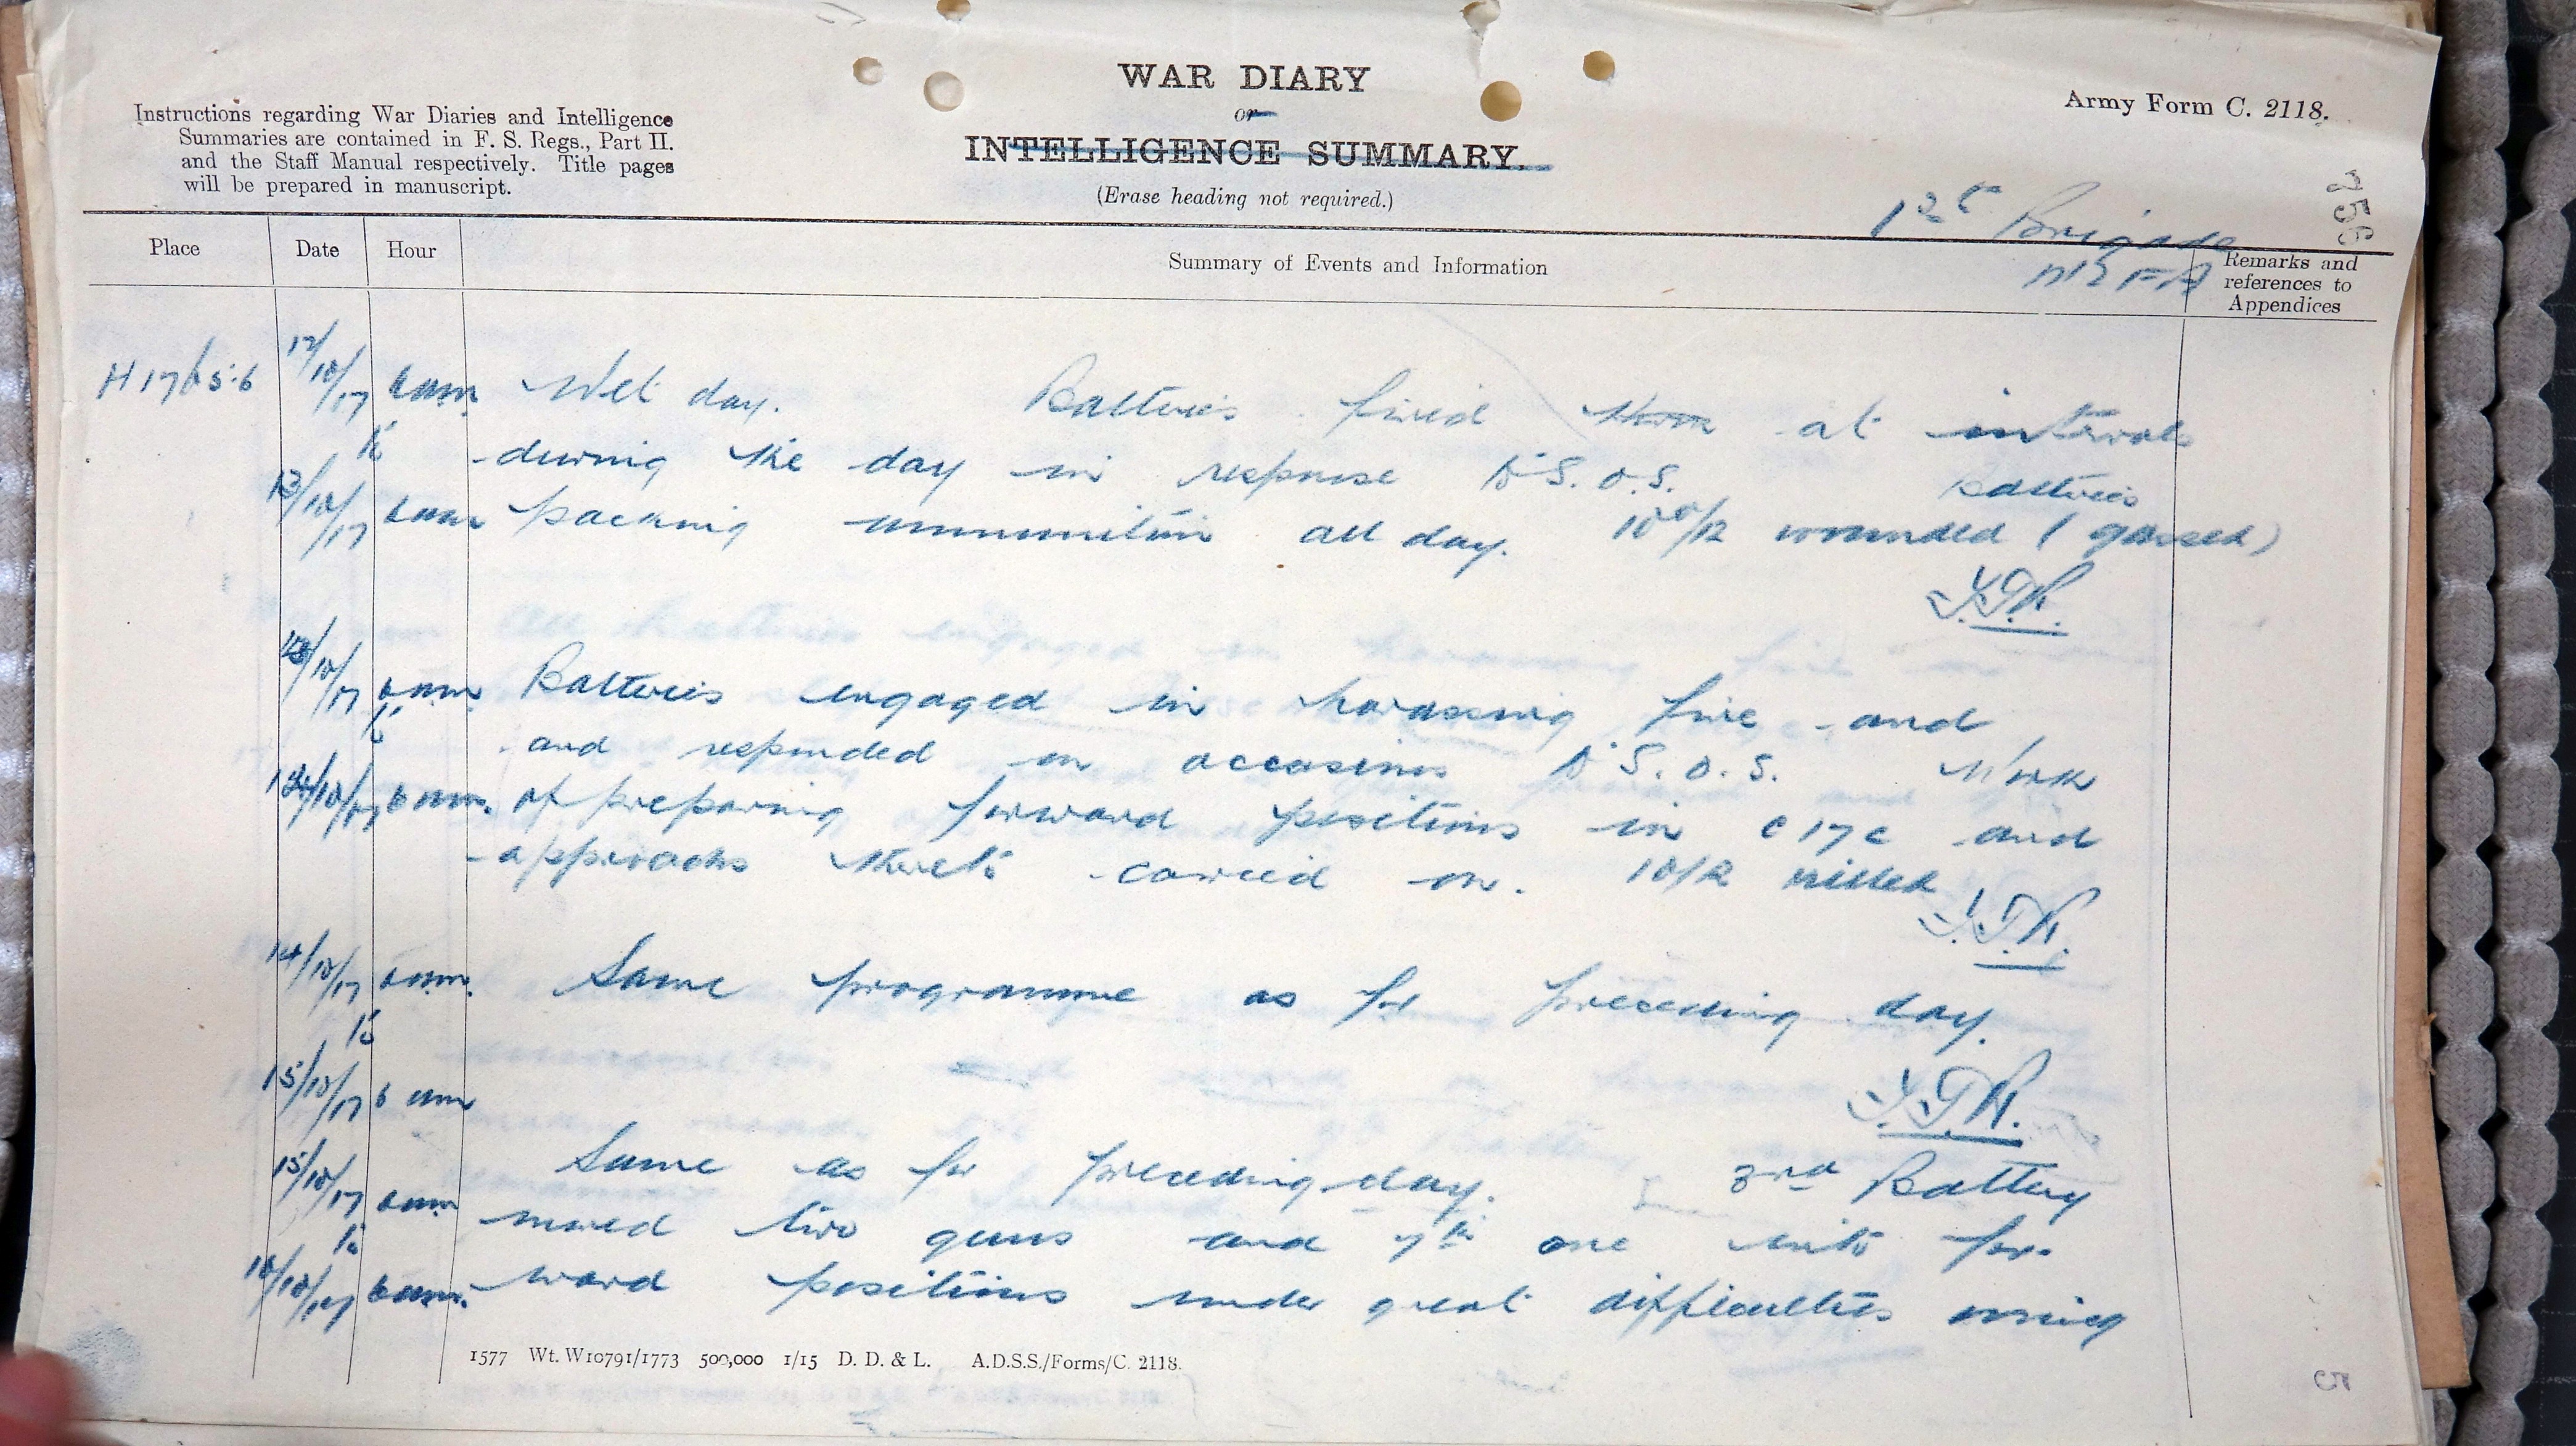 WAR DIARY
or
INTELLIGENCE SUMMARY.
(Erase heading not required.)
Instructions regarding War Diaries and Intelligence
Summaries are contained in F. S. Regs., Part II.
and the Staff Manual respectively. Title pages
will be prepared in manuscript.
Army Form C. 2118.
1st Brigade
NZFA
Place Date Hour Summary of Events and Information
Remarks and
references to
Appendices
H 17 b 5.6 12/10/17 6am Wet day. Batteries fired at intervals
to during the day in response to S.O.S. Batteries
13/10/17 6am packing ammunition all day. 10 O/R wounded (gassed)
13/10/17 6am Batteries engaged in harassing fire and
to and responded on occasions to S.O.S. Work
14/10/17 6am. of preparing forward positions in C 17 c and
approachs thereto carried on. 1 O/R killed
14/10/17 6am. Same programme as for preceding day.
to
15/10/17 6 am
15/10/17 6am Same as for preceding day. 3rd Battery
to moved two guns and 7th one into for-
16/10/17 6am. ward positions under great difficulties owing
1577 Wt. W10791/1773 500,000 1/15 D. D. & L. A.D.S.S./Forms/C. 2118.